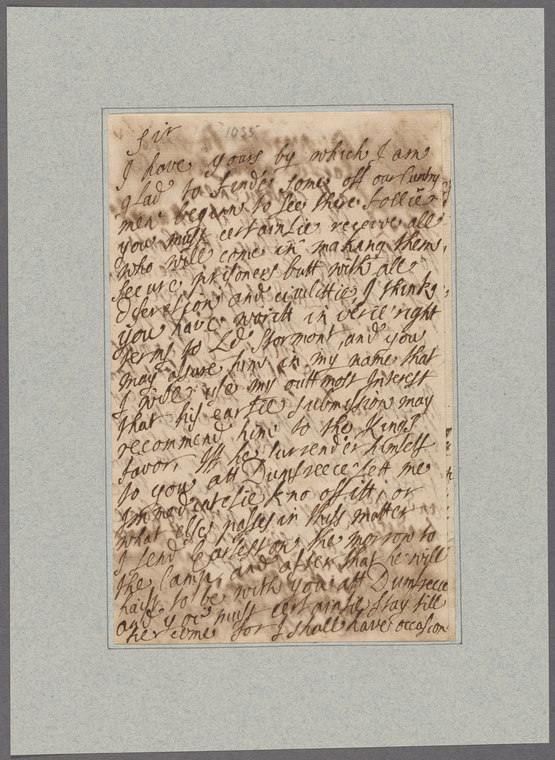 Sir 1035
I have yours by which I am
glad to find some off our Cuntry
men beginn to see there follie
you must certainlie receive all
who will come in making them
secure prisoners butt with all
discretion and civilitie I think
you have writt in verie right
terms to Ld Stormont and you
may assure him in my name that
I will use my outtmost Interest
that his earlie submission may
recommend him to the Kings
favor, If he surrender himself
to you att Dumfreece lett me
immediatelie kno off itt, or
what elles passes in this matter
I send to morrow to
the Camp, and after that he will
haist to be with you att Dumfreece
and you must certainlie stay till
he come for I shall have occasion